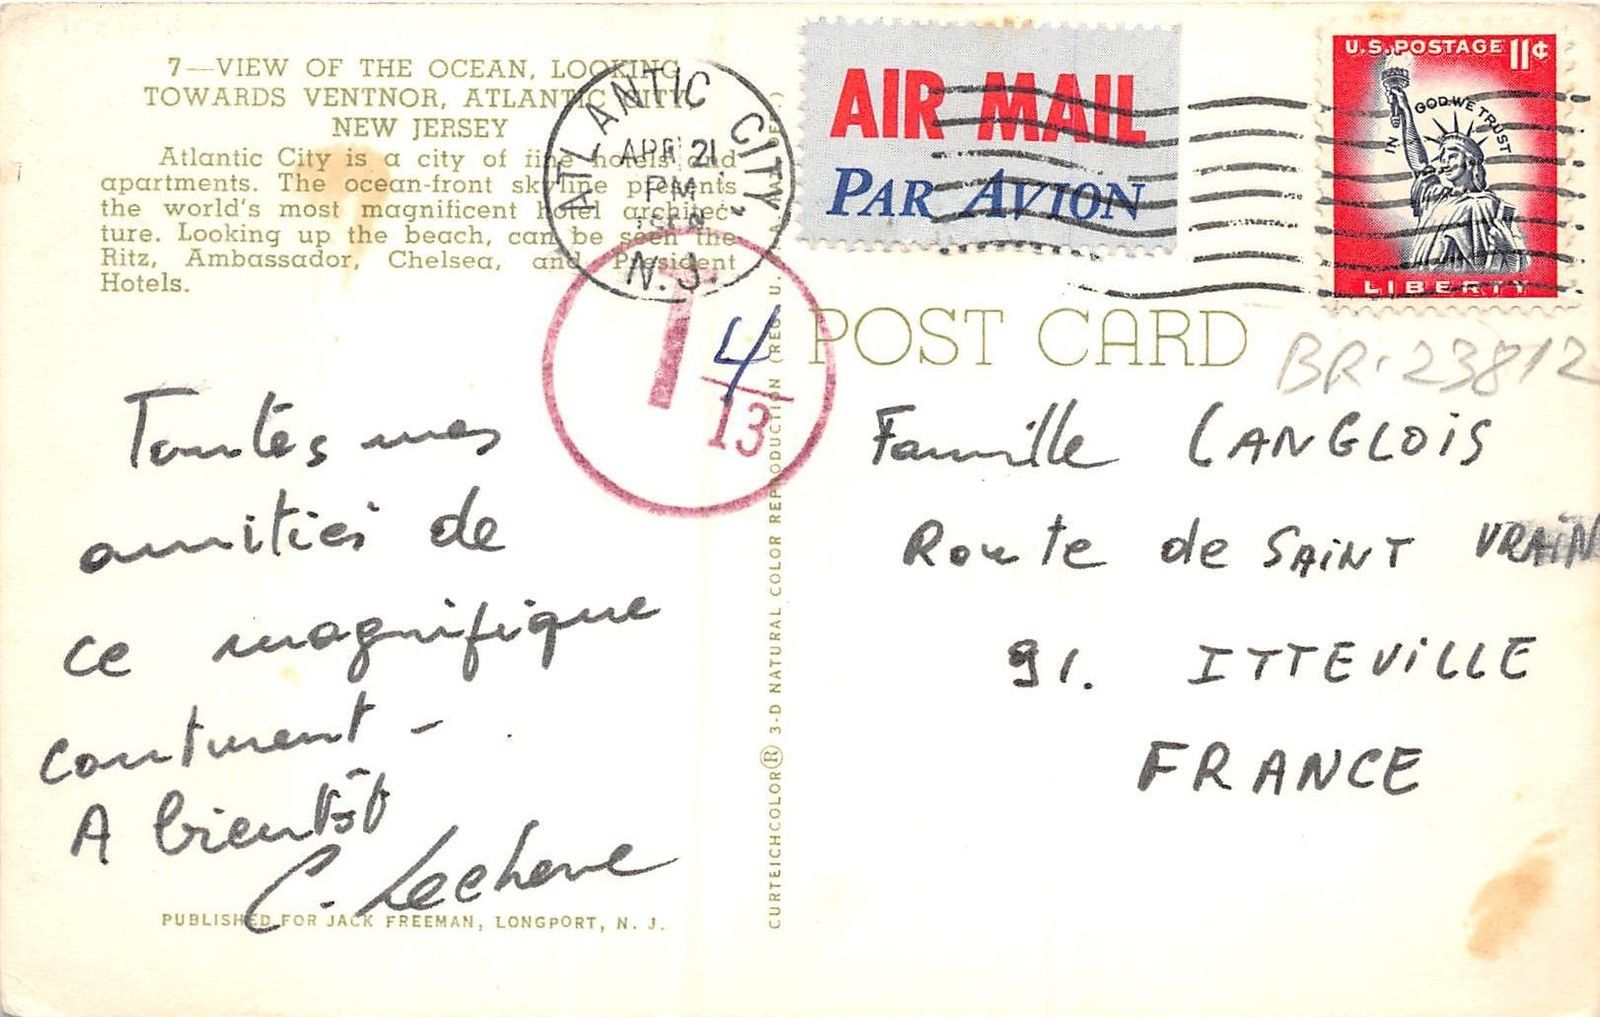 7—VIEW OF THE OCEAN, LOOKING
TOWARDS VENTNOR, ATLANTIC CITY
NEW JERSEY
Atlantic City is a city of fine hotels and
apartments. The ocean-front skyline presents
the world's most magnificent hotel architec-
ture. Looking up the beach, can be seen the
Ritz, Ambassador, Chelsea, and President
Hotels.
ATLANTIC CITY,
APR 21
PM
N.J.
AIR MAIL
PAR AVION
U.S. POSTAGE 11¢
IN GOD WE TRUST
LIBERTY
T 4
13
POST CARD
BR. 23812
Toutes mes
amitiés de
ce magnifique
continent -
A bientôt
C.
PUBLISHED FOR JACK FREEMAN, LONGPORT, N. J.
CURTEICHCOLOR® 3-D NATURAL COLOR REPRODUCTION (REG. U.
Famille LANGLOIS
Route de SAINT VRAIN
91. ITTEVILLE
FRANCE